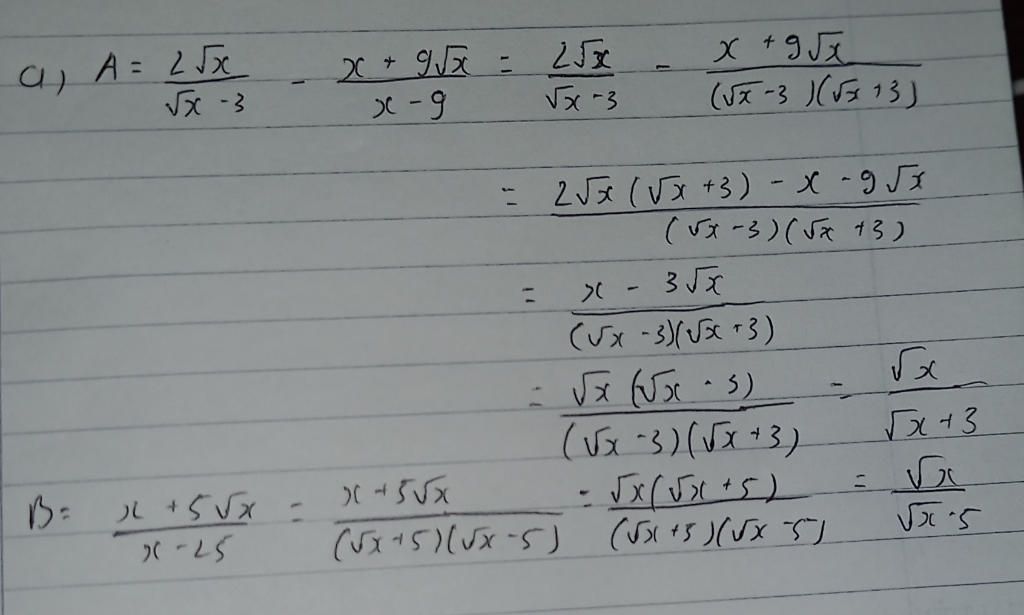 a, A = \frac{2\sqrt{x}}{\sqrt{x} - 3} - \frac{x + 9\sqrt{x}}{x - 9} = \frac{2\sqrt{x}}{\sqrt{x} - 3} - \frac{x + 9\sqrt{x}}{(\sqrt{x} - 3)(\sqrt{x} + 3)}
= \frac{2\sqrt{x}(\sqrt{x} + 3) - x - 9\sqrt{x}}{(\sqrt{x} - 3)(\sqrt{x} + 3)}
= \frac{x - 3\sqrt{x}}{(\sqrt{x} - 3)(\sqrt{x} + 3)}
= \frac{\sqrt{x}(\sqrt{x} - 3)}{(\sqrt{x} - 3)(\sqrt{x} + 3)} = \frac{\sqrt{x}}{\sqrt{x} + 3}
B = \frac{x + 5\sqrt{x}}{x - 25} = \frac{x + 5\sqrt{x}}{(\sqrt{x} + 5)(\sqrt{x} - 5)} = \frac{\sqrt{x}(\sqrt{x} + 5)}{(\sqrt{x} + 5)(\sqrt{x} - 5)} = \frac{\sqrt{x}}{\sqrt{x} - 5}